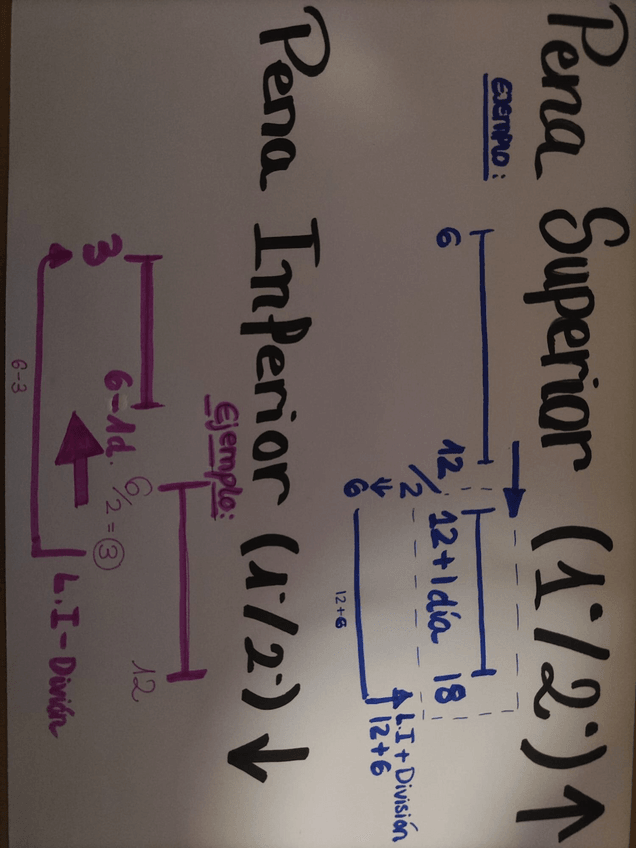 Pena Superior (1º/2º) ↑
EJEMPLO:
6 12 12+1 día 18
/2
6
12+6
L.I + División
12+6
Pena Inferior (1º/2º) ↓
Ejemplo:
3 6-1d. 6 12
6/2 = 3
6-3
L.I - Divión